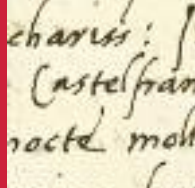 chariss:
Castelfran
nocte mol